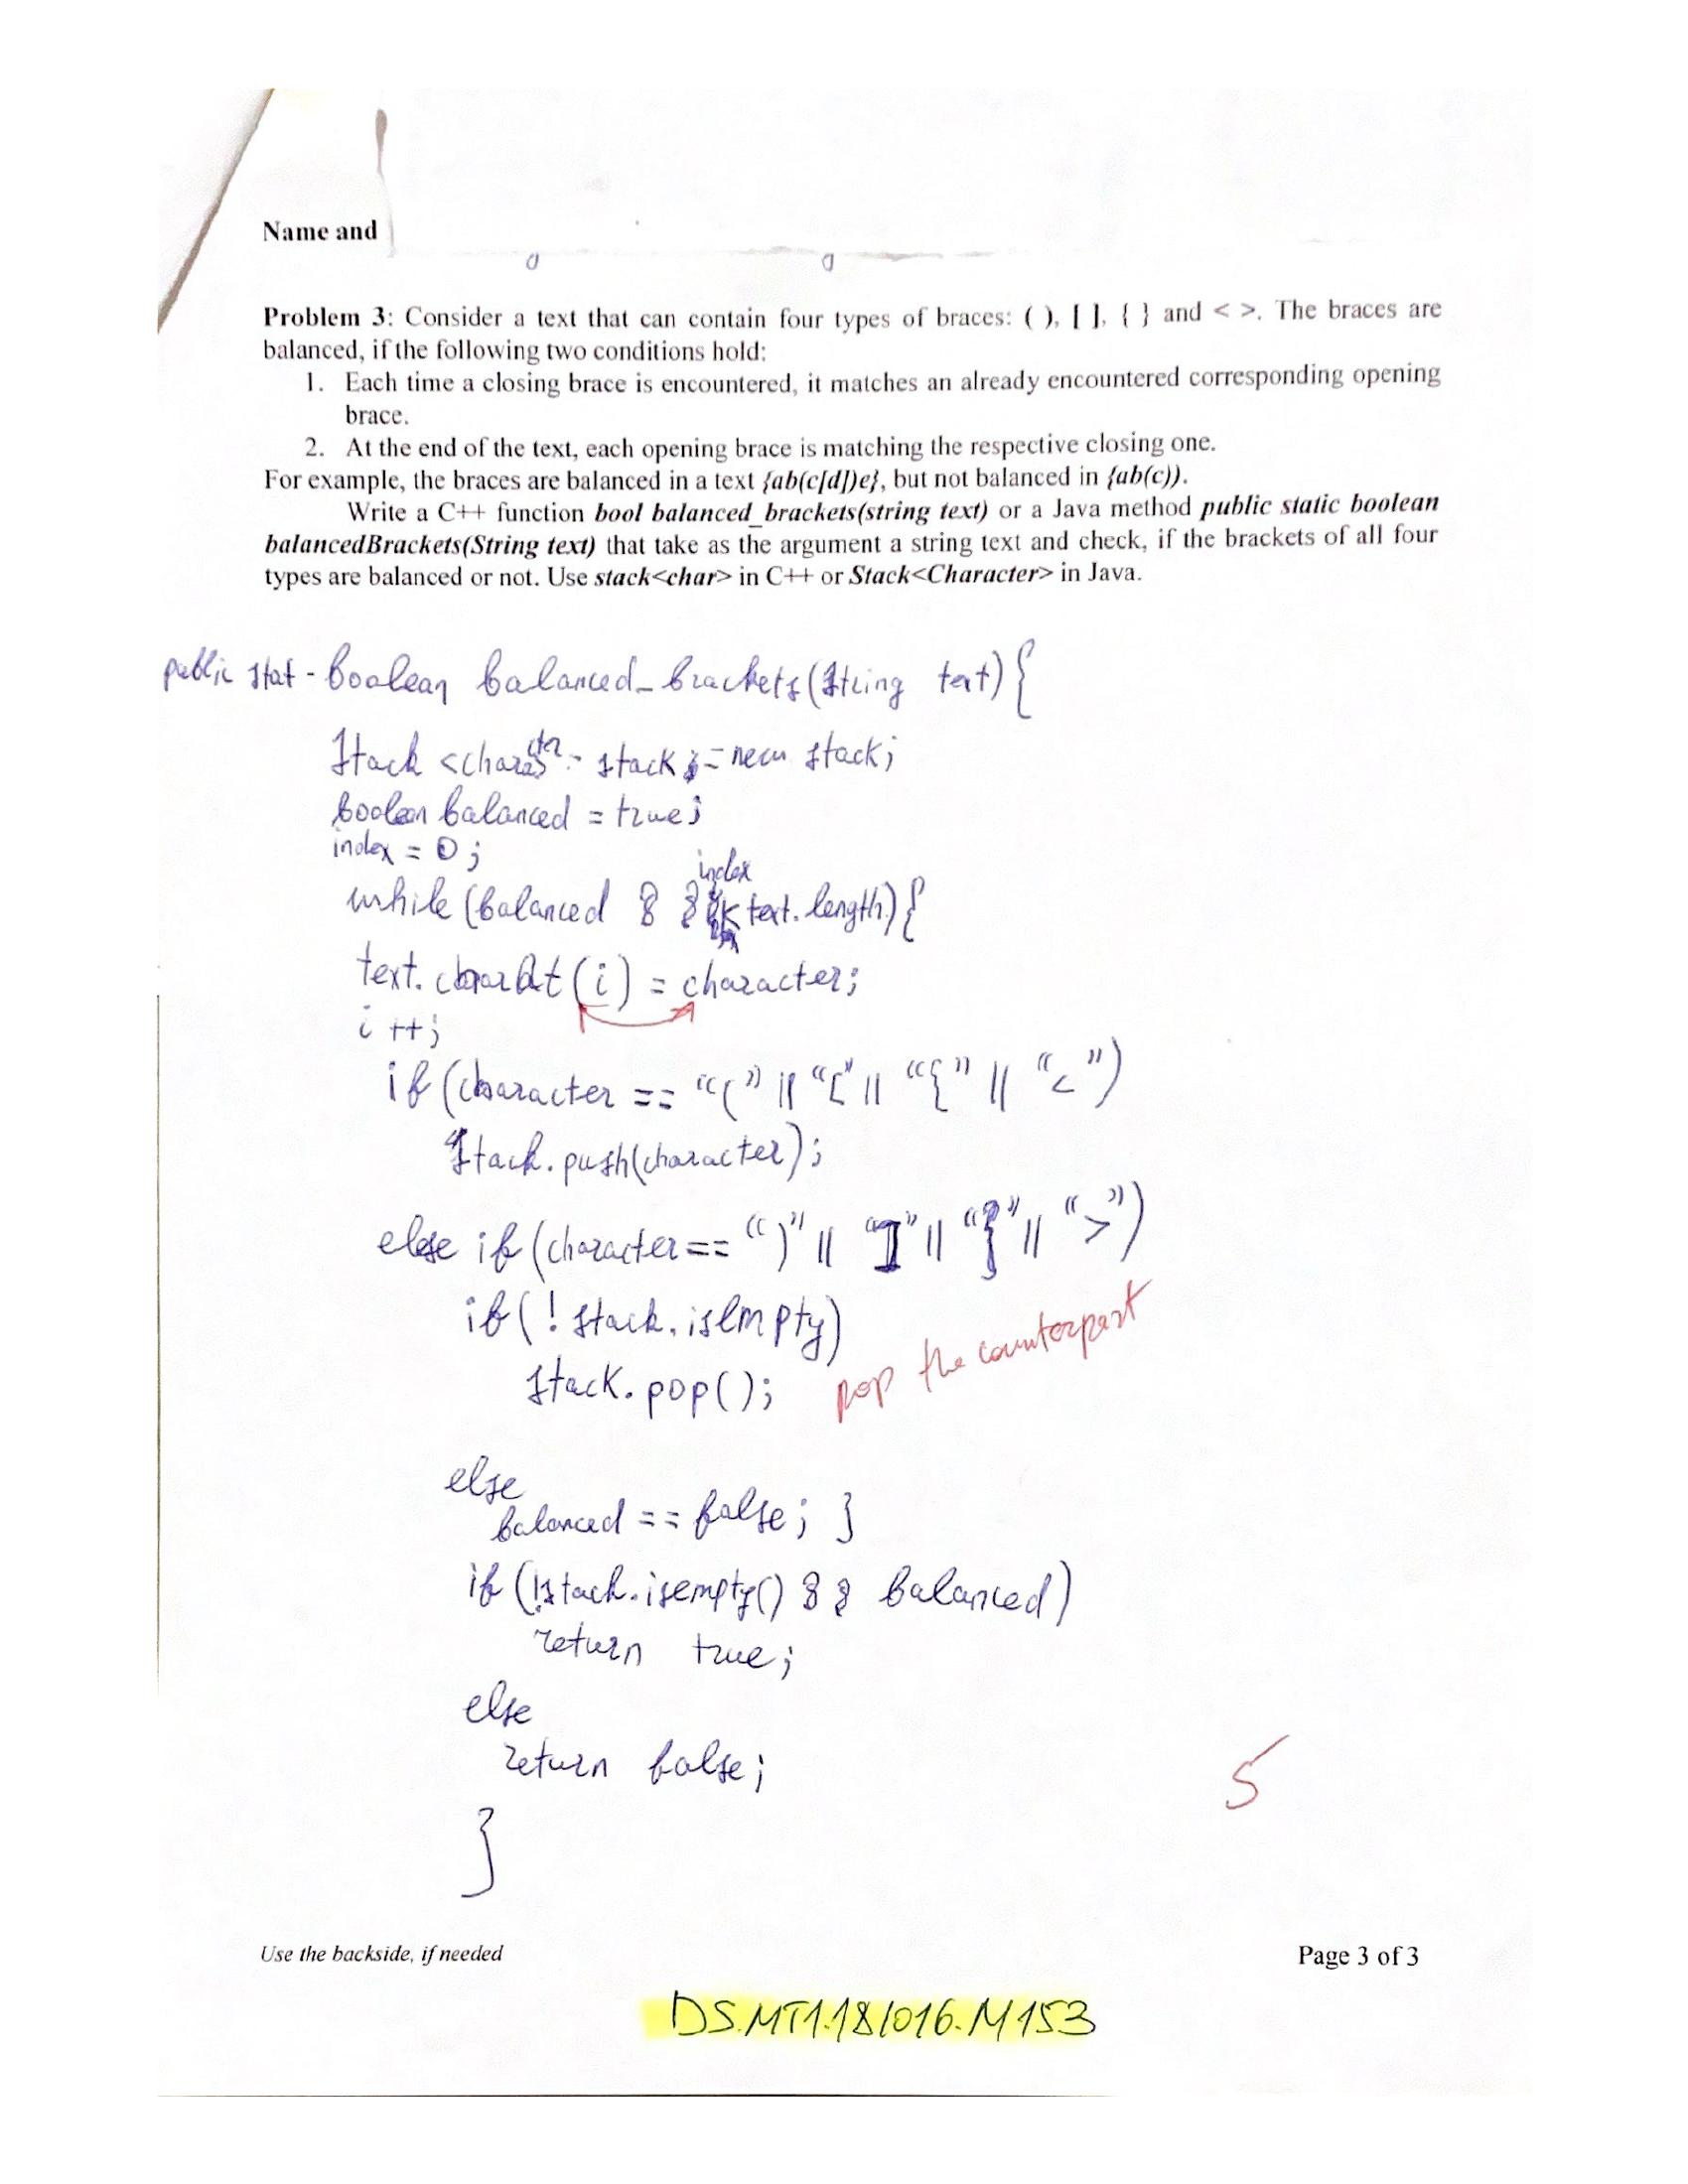 Name and
Problem 3: Consider a text that can contain four types of braces: ( ), [ ], { } and < >. The braces are
balanced, if the following two conditions hold:
1. Each time a closing brace is encountered, it matches an already encountered corresponding opening
brace.
2. At the end of the text, each opening brace is matching the respective closing one.
For example, the braces are balanced in a text {ab(c[d])e}, but not balanced in {ab(c)).
Write a C++ function bool balanced_brackets(string text) or a Java method public static boolean
balancedBrackets(String text) that take as the argument a string text and check, if the brackets of all four
types are balanced or not. Use stack<char> in C++ or Stack<Character> in Java.
public stat - boolean balanced_brackets(String text){
Stack <character> stack = new stack;
boolean balanced = true;
index = 0;
while (balanced && index < text.length){
text.charAt(i) = character;
i++;
if (character == "(" || "[" || "{" || "<")
Stack.push(character);
else if (character == ")" || "]" || "}" || ">")
if (! stack.isEmpty)
stack.pop(); pop the counterpart
else
balanced == false; }
if (!stack.isempty() && balanced)
return true;
else
return false;
5
}
Use the backside, if needed
Page 3 of 3
DS.MT1.181016.M153